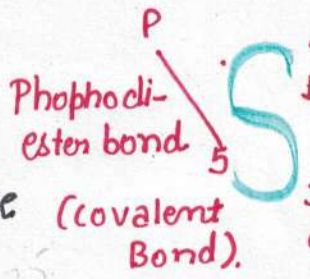 P
Phophodi-
ester bond
5
S
(covalent
Bond).